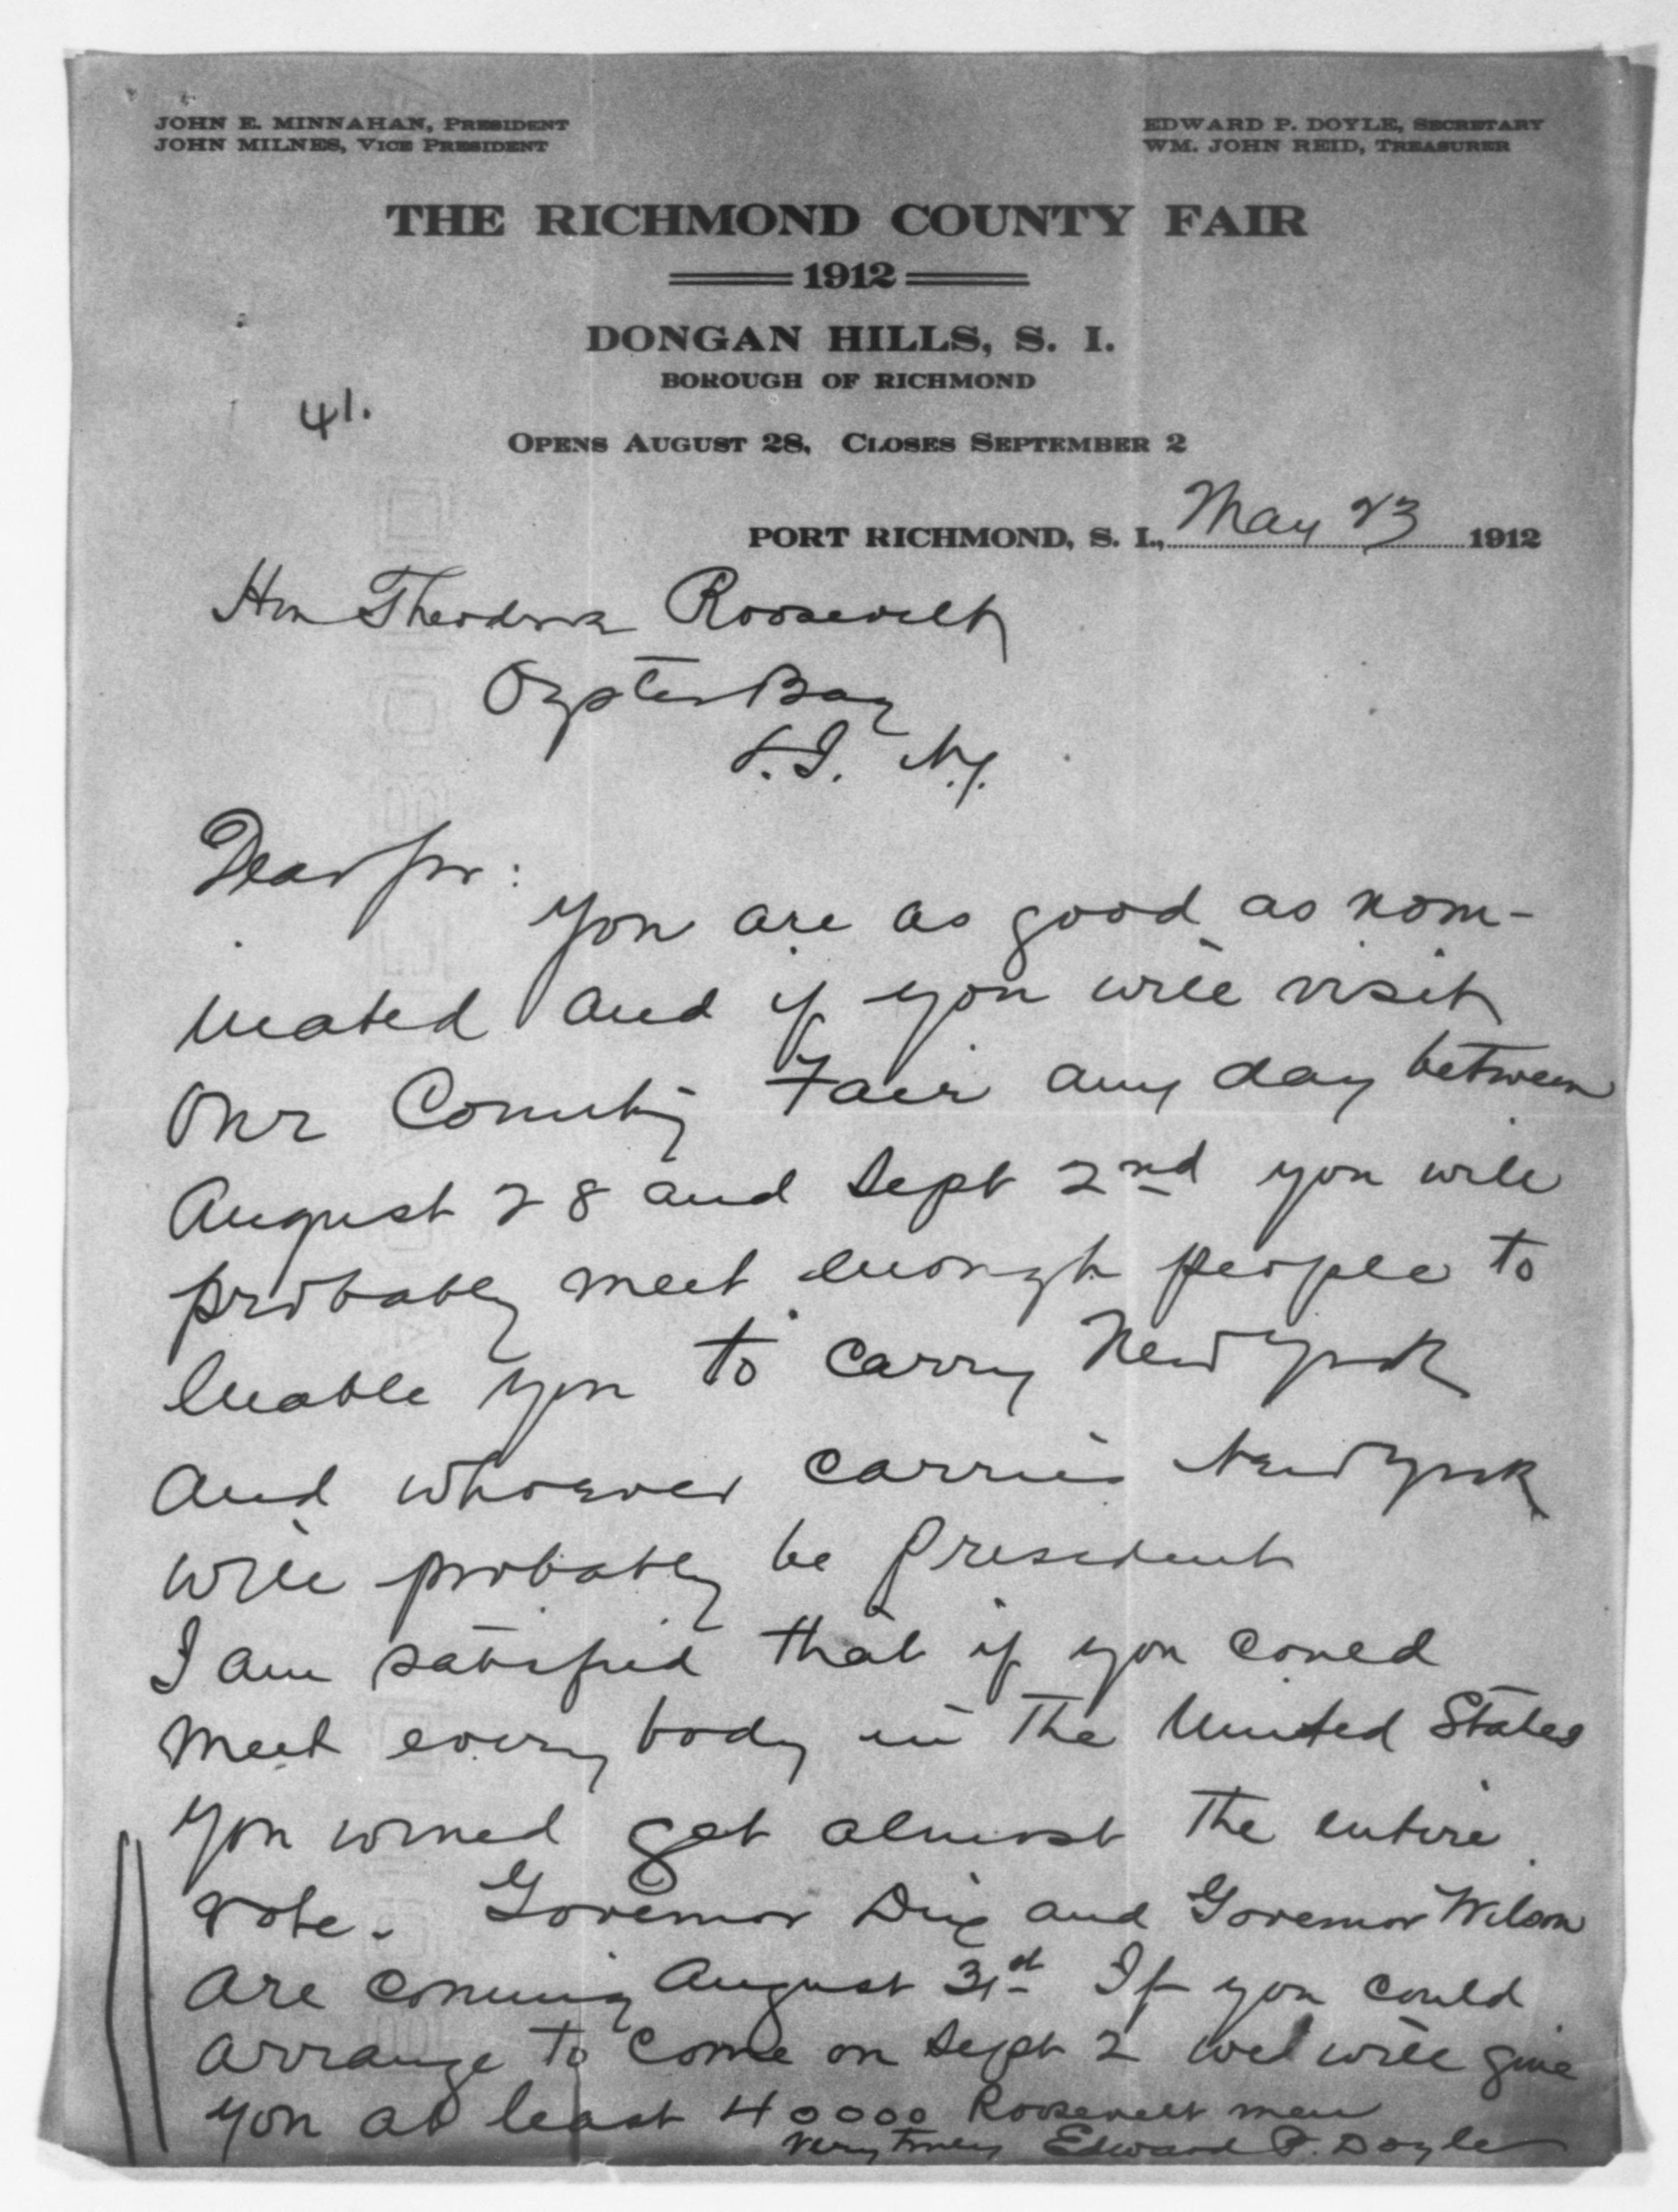 JOHN E. MINNAHAN, PRESIDENT
JOHN MILNES, VICE PRESIDENT
EDWARD P. DOYLE, SECRETARY
WM. JOHN REID, TREASURER
THE RICHMOND COUNTY FAIR
1912
DONGAN HILLS, S. I.
BOROUGH OF RICHMOND
41.
OPENS AUGUST 28, CLOSES SEPTEMBER 2
PORT RICHMOND, S. I., May 23 1912
Hon Theodore Roosevelt
Oyster Bay
L.I. N.Y.
Dear Sir:
You are as good as nom-
inated and if you will visit
Our County Fair any day between
August 28 and Sept 2nd you will
probably meet enough people to
enable you to carry New York
and whoever carries New York
will probably be President
I am satisfied that if you could
meet every body in the United States
you would get almost the entire
vote. Governor Dix and Governor Wilson
are coming August 31st If you could
arrange to come on Sept 2 we will give
you at least 40000 Roosevelt men
Very Truly Edward P. Doyle